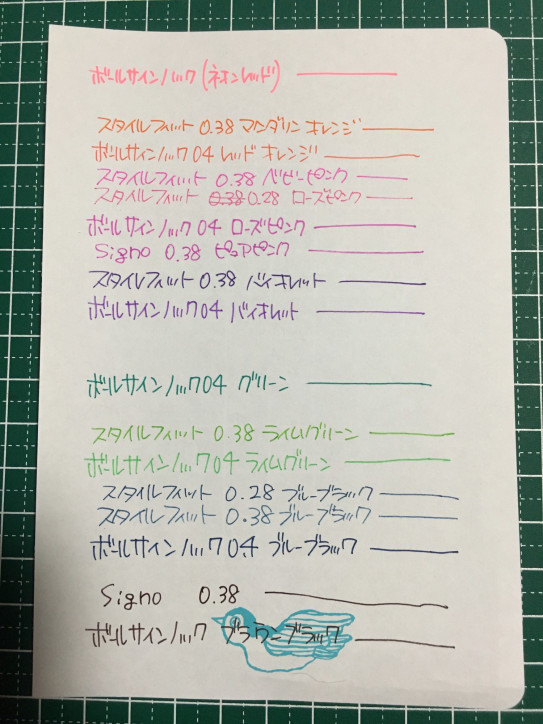 ボールサインノック(ネオンレッド)
スタイルフィット 0.38 マンダリンオレンジ
ボールサインノック04 レッドオレンジ
スタイルフィット 0.38 ベビーピンク
スタイルフィット 0.38 0.28 ローズピンク
ボールサインノック04 ローズピンク
Signo 0.38 ピュアピンク
スタイルフィット 0.38 バイオレット
ボールサインノック04 バイオレット
ボールサインノック04 グリーン
スタイルフィット 0.38 ライムグリーン
ボールサインノック04 ライムグリーン
スタイルフィット 0.28 ブルーブラック
スタイルフィット 0.38 ブルーブラック
ボールサインノック04 ブルーブラック
Signo 0.38
ボールサインノック ブラウンブラック